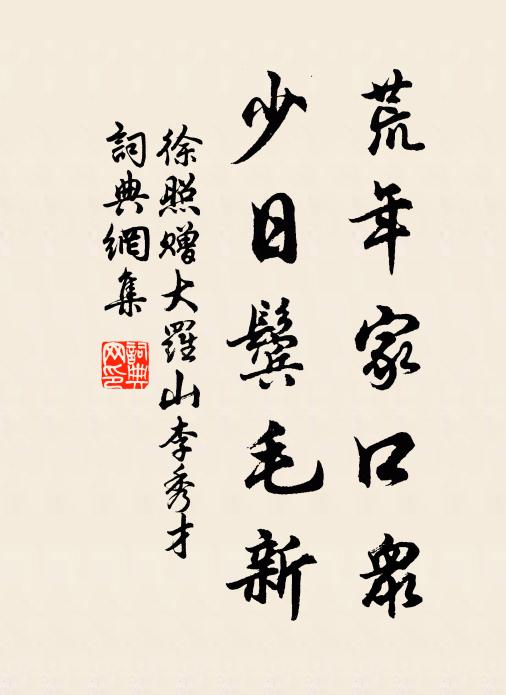 荒年家口眾
少日鬢毛新
徐照贈大羅山李秀才
詞典網集
詞典網印